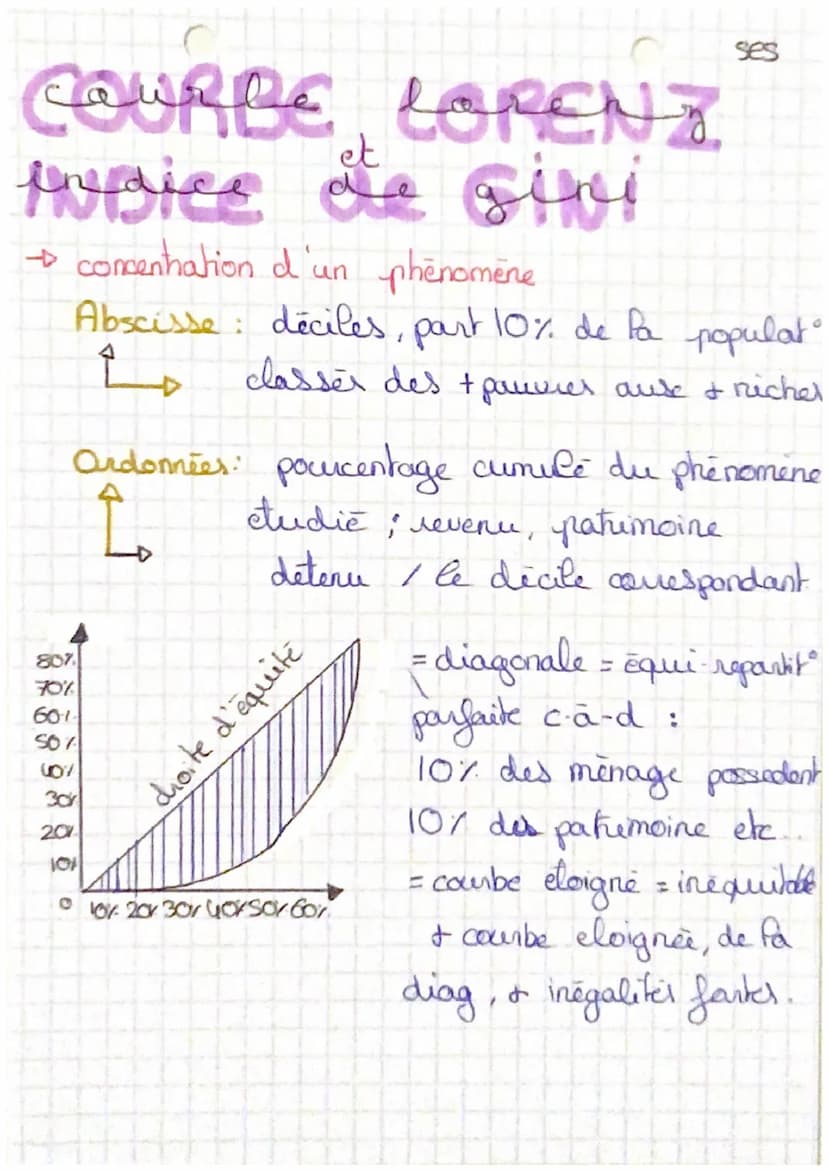 SES
COURBE LORENZ
et
INDICE de GINI
→ concentration d'un phénomène
Abscisse : déciles, part 10% de la populat°
classés des + pauvres aux + riches
Ordonnées : pourcentage cumulé du phénomène
étudié ; revenu, patrimoine
détenu / le décile correspondant
80%
70%
60%
50%
40%
30%
20%
10%
0 10% 20% 30% 40% 50% 60%
droite d'équité
= diagonale = équi-repartit°
parfaite c-à-d :
10% des ménage possedent
10% des patrimoine etc...
= courbe eloigné = inéquitable
+ courbe eloignée, de la
diag, + inégalités fortes.